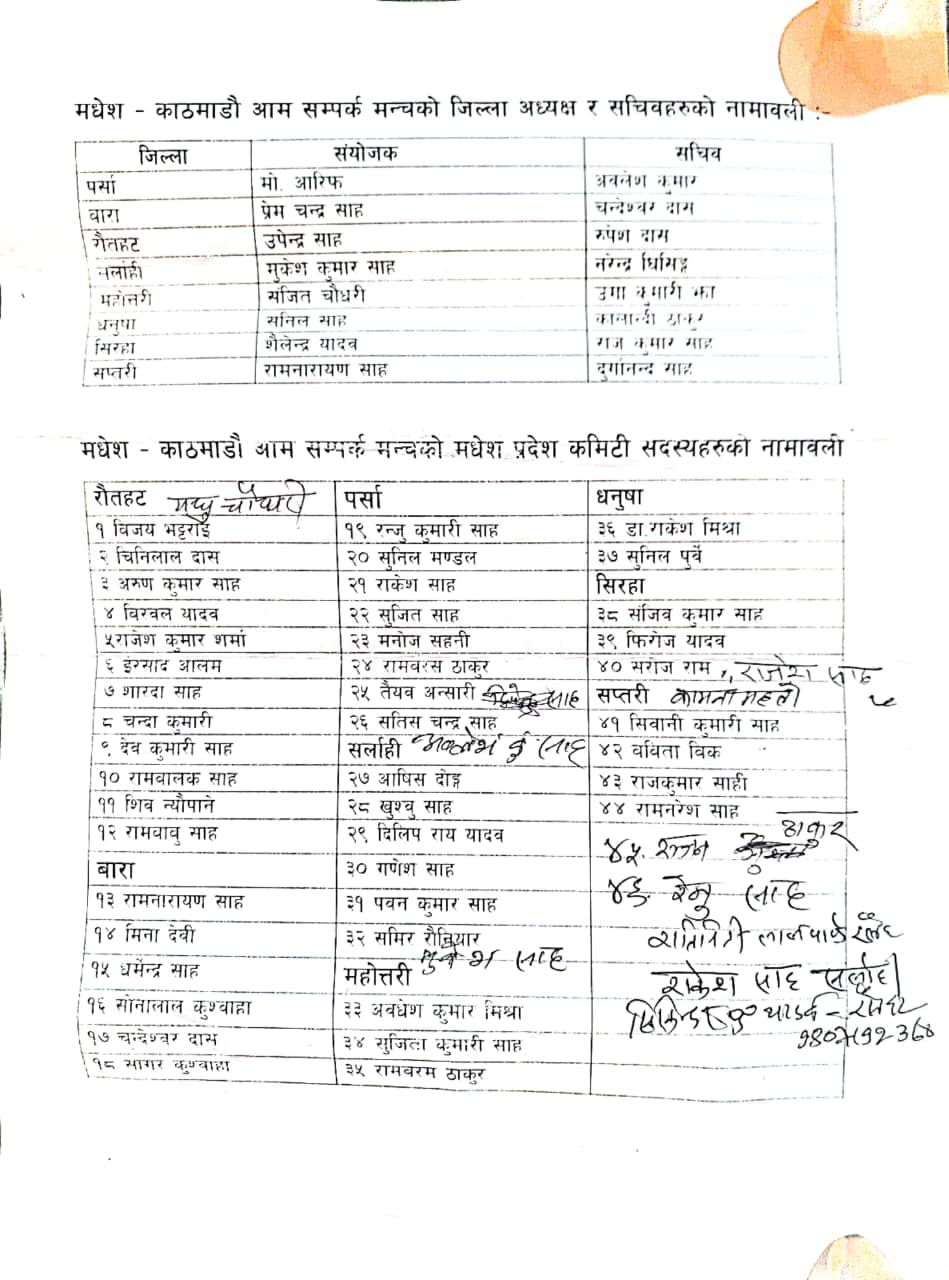 मधेश - काठमाडौ आम सम्पर्क मन्चको जिल्ला अध्यक्ष र सचिवहरुको नामावली :-
जिल्ला संयोजक सचिव
पर्सा मो. आरिफ अवलेश कुमार
बारा प्रेम चन्द्र साह चन्देश्वर दास
रौतहट उपेन्द्र साह रुपेश दास
सर्लाही मुकेश कुमार साह नरेन्द्र घिसिङ्ग
महोत्तरी संजित चौधरी उमा कुमारी झा
धनुषा सनिल साह कालान्दी ठाकुर
सिरहा शैलेन्द्र यादव राज कुमार साह
सप्तरी रामनारायण साह दुर्गानन्द साह
मधेश - काठमाडौ आम सम्पर्क मन्चको मधेश प्रदेश कमिटी सदस्यहरुको नामावली
रौतहट मधु चौधरी पर्सा धनुषा
१ विजय भट्टराई १९ रन्जु कुमारी साह ३६ डा.राकेश मिश्रा
२ चिनिलाल दास २० सुनिल मण्डल ३७ सुनिल पुर्वे
३ अरुण कुमार साह २१ राकेश साह सिरहा
४ विरवल यादव २२ सुजित साह ३८ संजिव कुमार साह
५राजेश कुमार शर्मा २३ मनोज सहनी ३९ फिरोज यादव
६ इरसाद आलम २४ रामवरस ठाकुर ४० सरोज राम , राजेश साह
७ शारदा साह २५ तैयव अन्सारी साह सप्तरी कामना महतो
८ चन्दा कुमारी २६ सतिस चन्द्र साह ४१ सिवानी कुमारी साह
९ देव कुमारी साह सर्लाही कु साह ४२ वविता विक
१० रामवालक साह २७ आषिस दोङ्ग ४३ राजकुमार साही
११ शिव न्यौपाने २८ खुश्वु साह ४४ रामनरेश साह
१२ रामवावु साह २९ दिलिप राय यादव ४५. राजन ठाकुर
बारा ३० गणेश साह
१३ रामनारायण साह ३१ पवन कुमार साह ४६. रेनु साह
१४ मिना देवी ३२ समिर रौनियार
१५ धर्मेन्द्र साह महोत्तरी मुकेश साह राकेश साह सर्लाही
१६ सोनालाल कुश्वाहा ३३ अवधेश कुमार मिश्रा
१७ चन्देश्वर दास ३४ सुजिता कुमारी साह
१८ सागर कुश्वाहा ३५ रामवरम ठाकुर